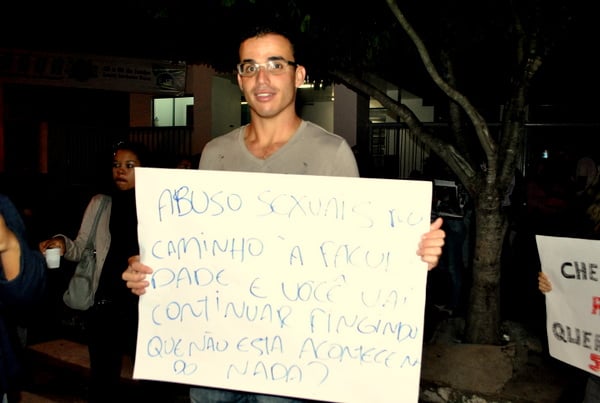 ABUSO SEXUAIS NO
CAMINHO À FACUL
DADE E VOCÊ VAI
CONTINUAR FINGINDO
QUE NÃO ESTA ACONTECEN
DO NADA?
CHE
QUER